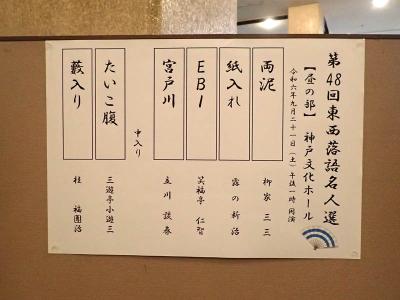 第48回東西落語名人選
【昼の部】 神戸文化ホール
令和六年九月二十一日(土)午後一時開演
両泥 柳家 三三
紙入れ 露の新治
EBI 笑福亭 仁智
宮戸川 立川 談春
中入り
たいこ腹 三遊亭小遊三
藪入り 桂 福團治